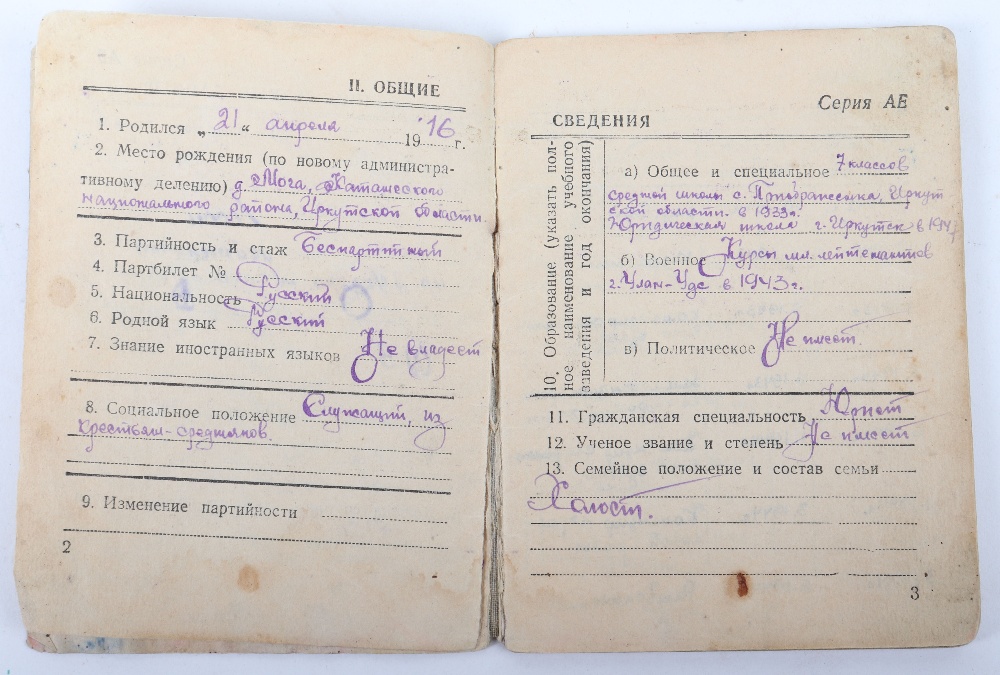 II. ОБЩИЕ
1. Родился „21“ апреля 1916 г.
2. Место рождения (по новому администра-
тивному делению) д. Мога, Каташгского
национального района, Иркутской области.
3. Партийность и стаж Беспартийный
4. Партбилет №
5. Национальность Русский
6. Родной язык Русский
7. Знание иностранных языков Не владеет
8. Социальное положение Служащий, из
крестьян-средняков.
9. Изменение партийности
2
Серия АЕ
СВЕДЕНИЯ
10. Образование (указать пол-
ное наименование учебного
заведения и год окончания)
а) Общее и специальное 7 классов
средней школы с. Иркут
ской области. в 1933г.
Юридическая школа г. Иркутск в
б) Военное Курсы мл. лейтенантов
г. Улан-Удэ в 1943г.
в) Политическое Не имеет.
11. Гражданская специальность Юрист
12. Ученое звание и степень Не имеет
13. Семейное положение и состав семьи
Холост.
3